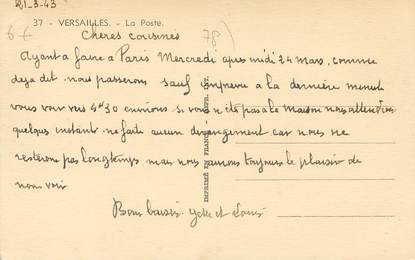 21-3-43
37 - VERSAILLES. - La Poste.
Chères cousines
Ayant a faire a Paris Mercredi apres midi 24 mars. comme
deja dit. nous passerons sauf imprevu a la derniere minute
vous voir vers 4h30 environs si vous n'ete pas a la maison nous attendrons
quelques instant ne faite aucun derangement car nous ne
resterons pas longtemps. mais nous aurons toujours le plaisir de
nous voir
Bons baisers et Louis
IMPRIMÉ EN FRANCE